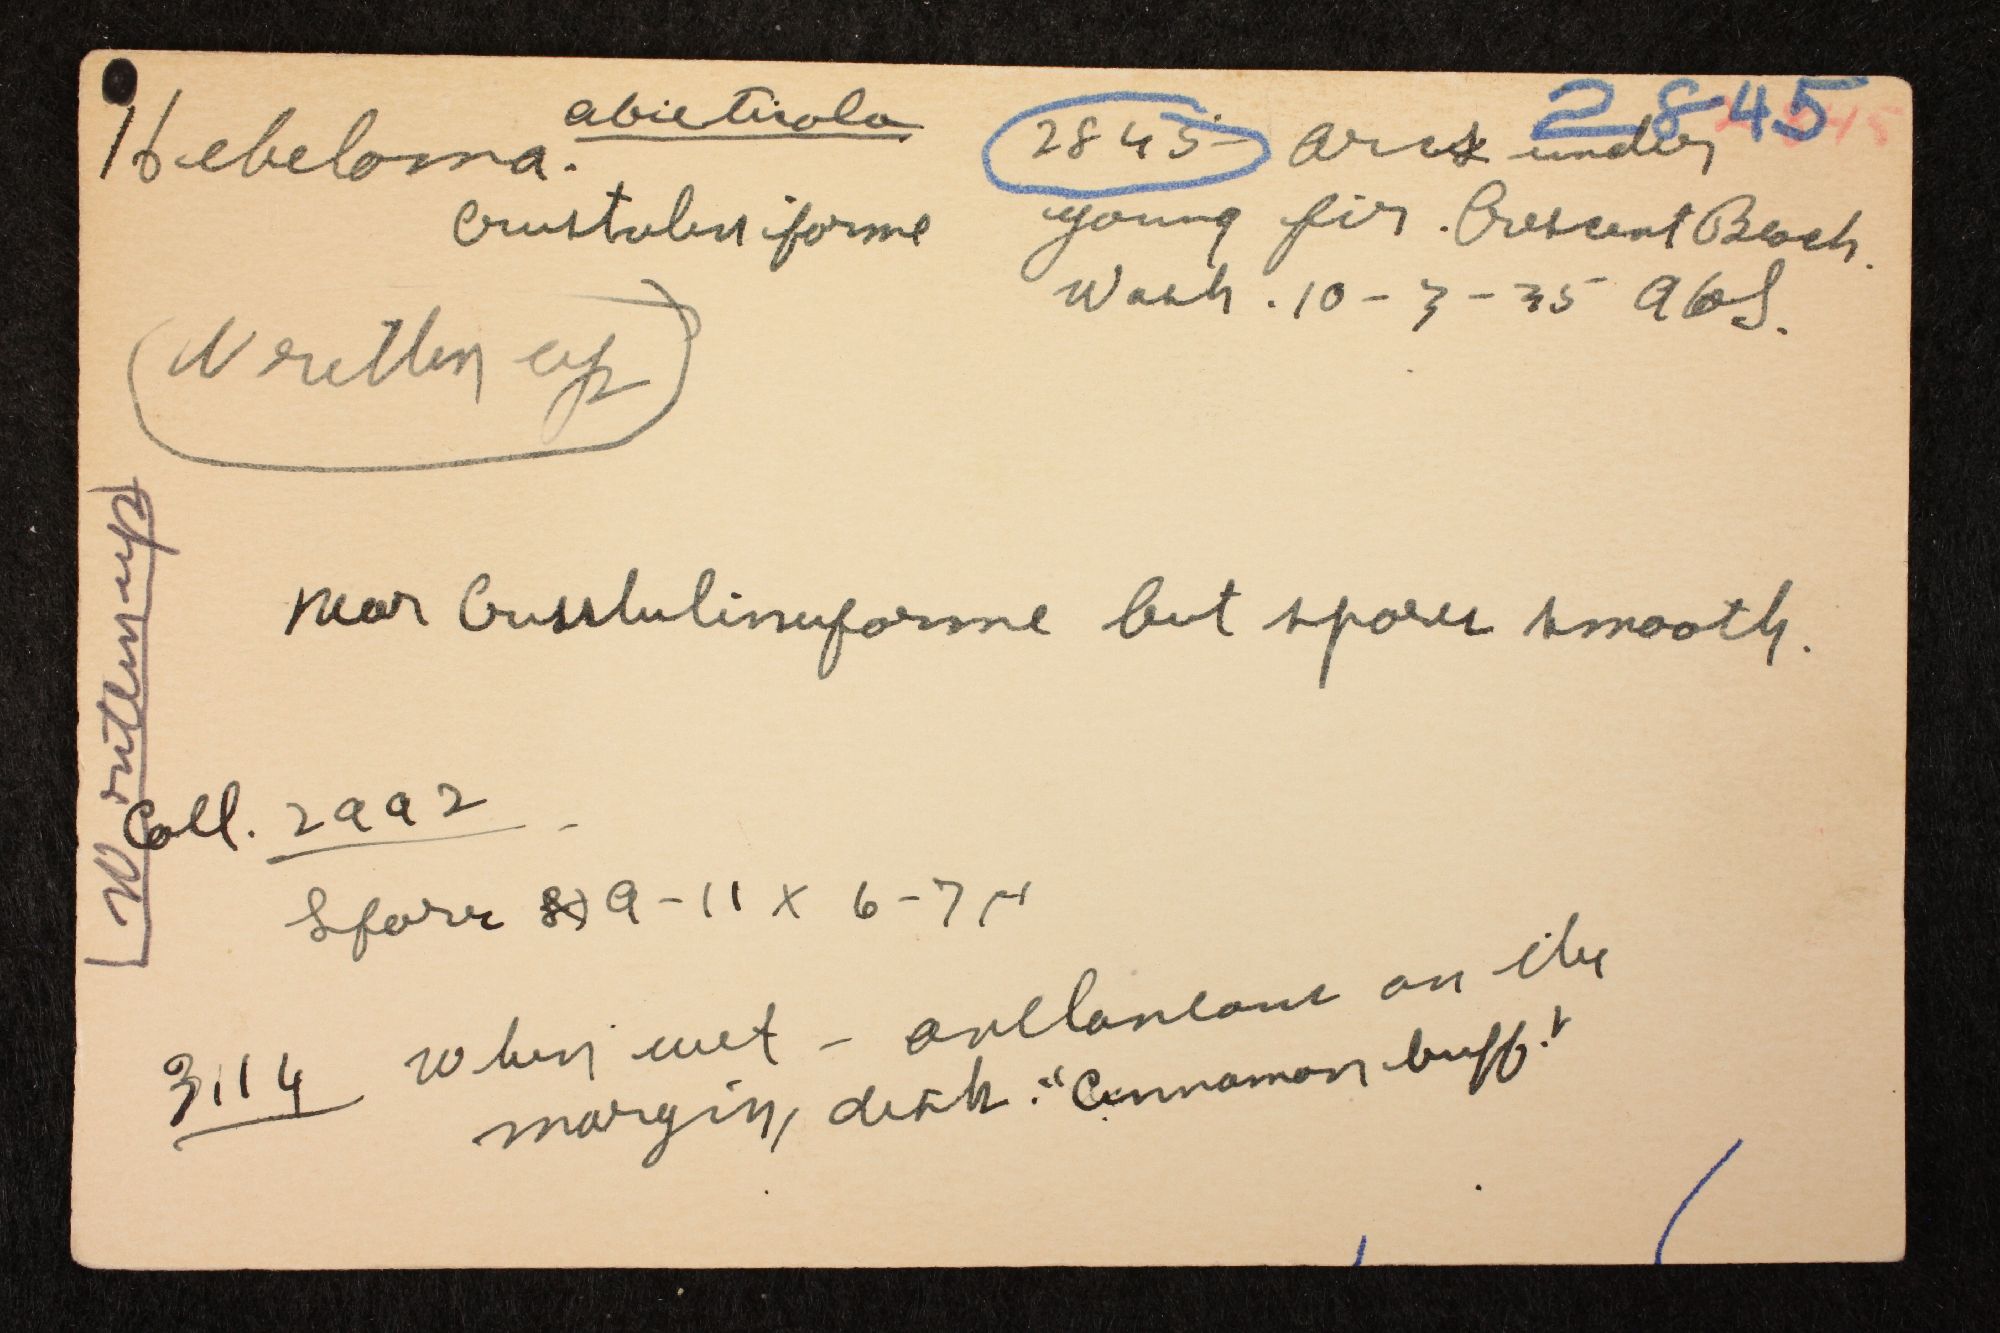 2845
Hebeloma. abieticola
crustuliniforme
2845 Gress under
young fir. Crescent Beach.
Wash. 10-3-35 AHS.
Written up
Written up
Near Crustuliniforme but spores smooth.
Coll. 2992
Spore 9-11 x 6-7 μ
3114 When wet - avellaneous on the
margin, disk "Cinnamon buff."